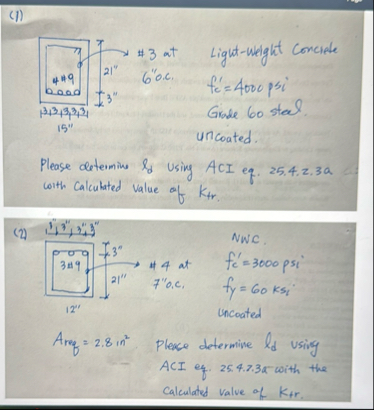 (1)
#3 at
6" o.c.
4#9
21"
3"
3,3,3,3,3
15"
Light-Weight Concrete
f'c = 4000 psi
Grade 60 steel.
uncoated.
Please determine ld using ACI eq. 25.4.2.3a
with Calculated value of Ktr.
(2)
3", 3", 3", 3"
3#9
3"
21"
12"
#4 at
7" o.c.
NWC.
f'c = 3000 psi
fy = 60 ksi
uncoated
Areq = 2.8 in²
Please determine ld using
ACI eq. 25.4.2.3a with the
Calculated value of Ktr.